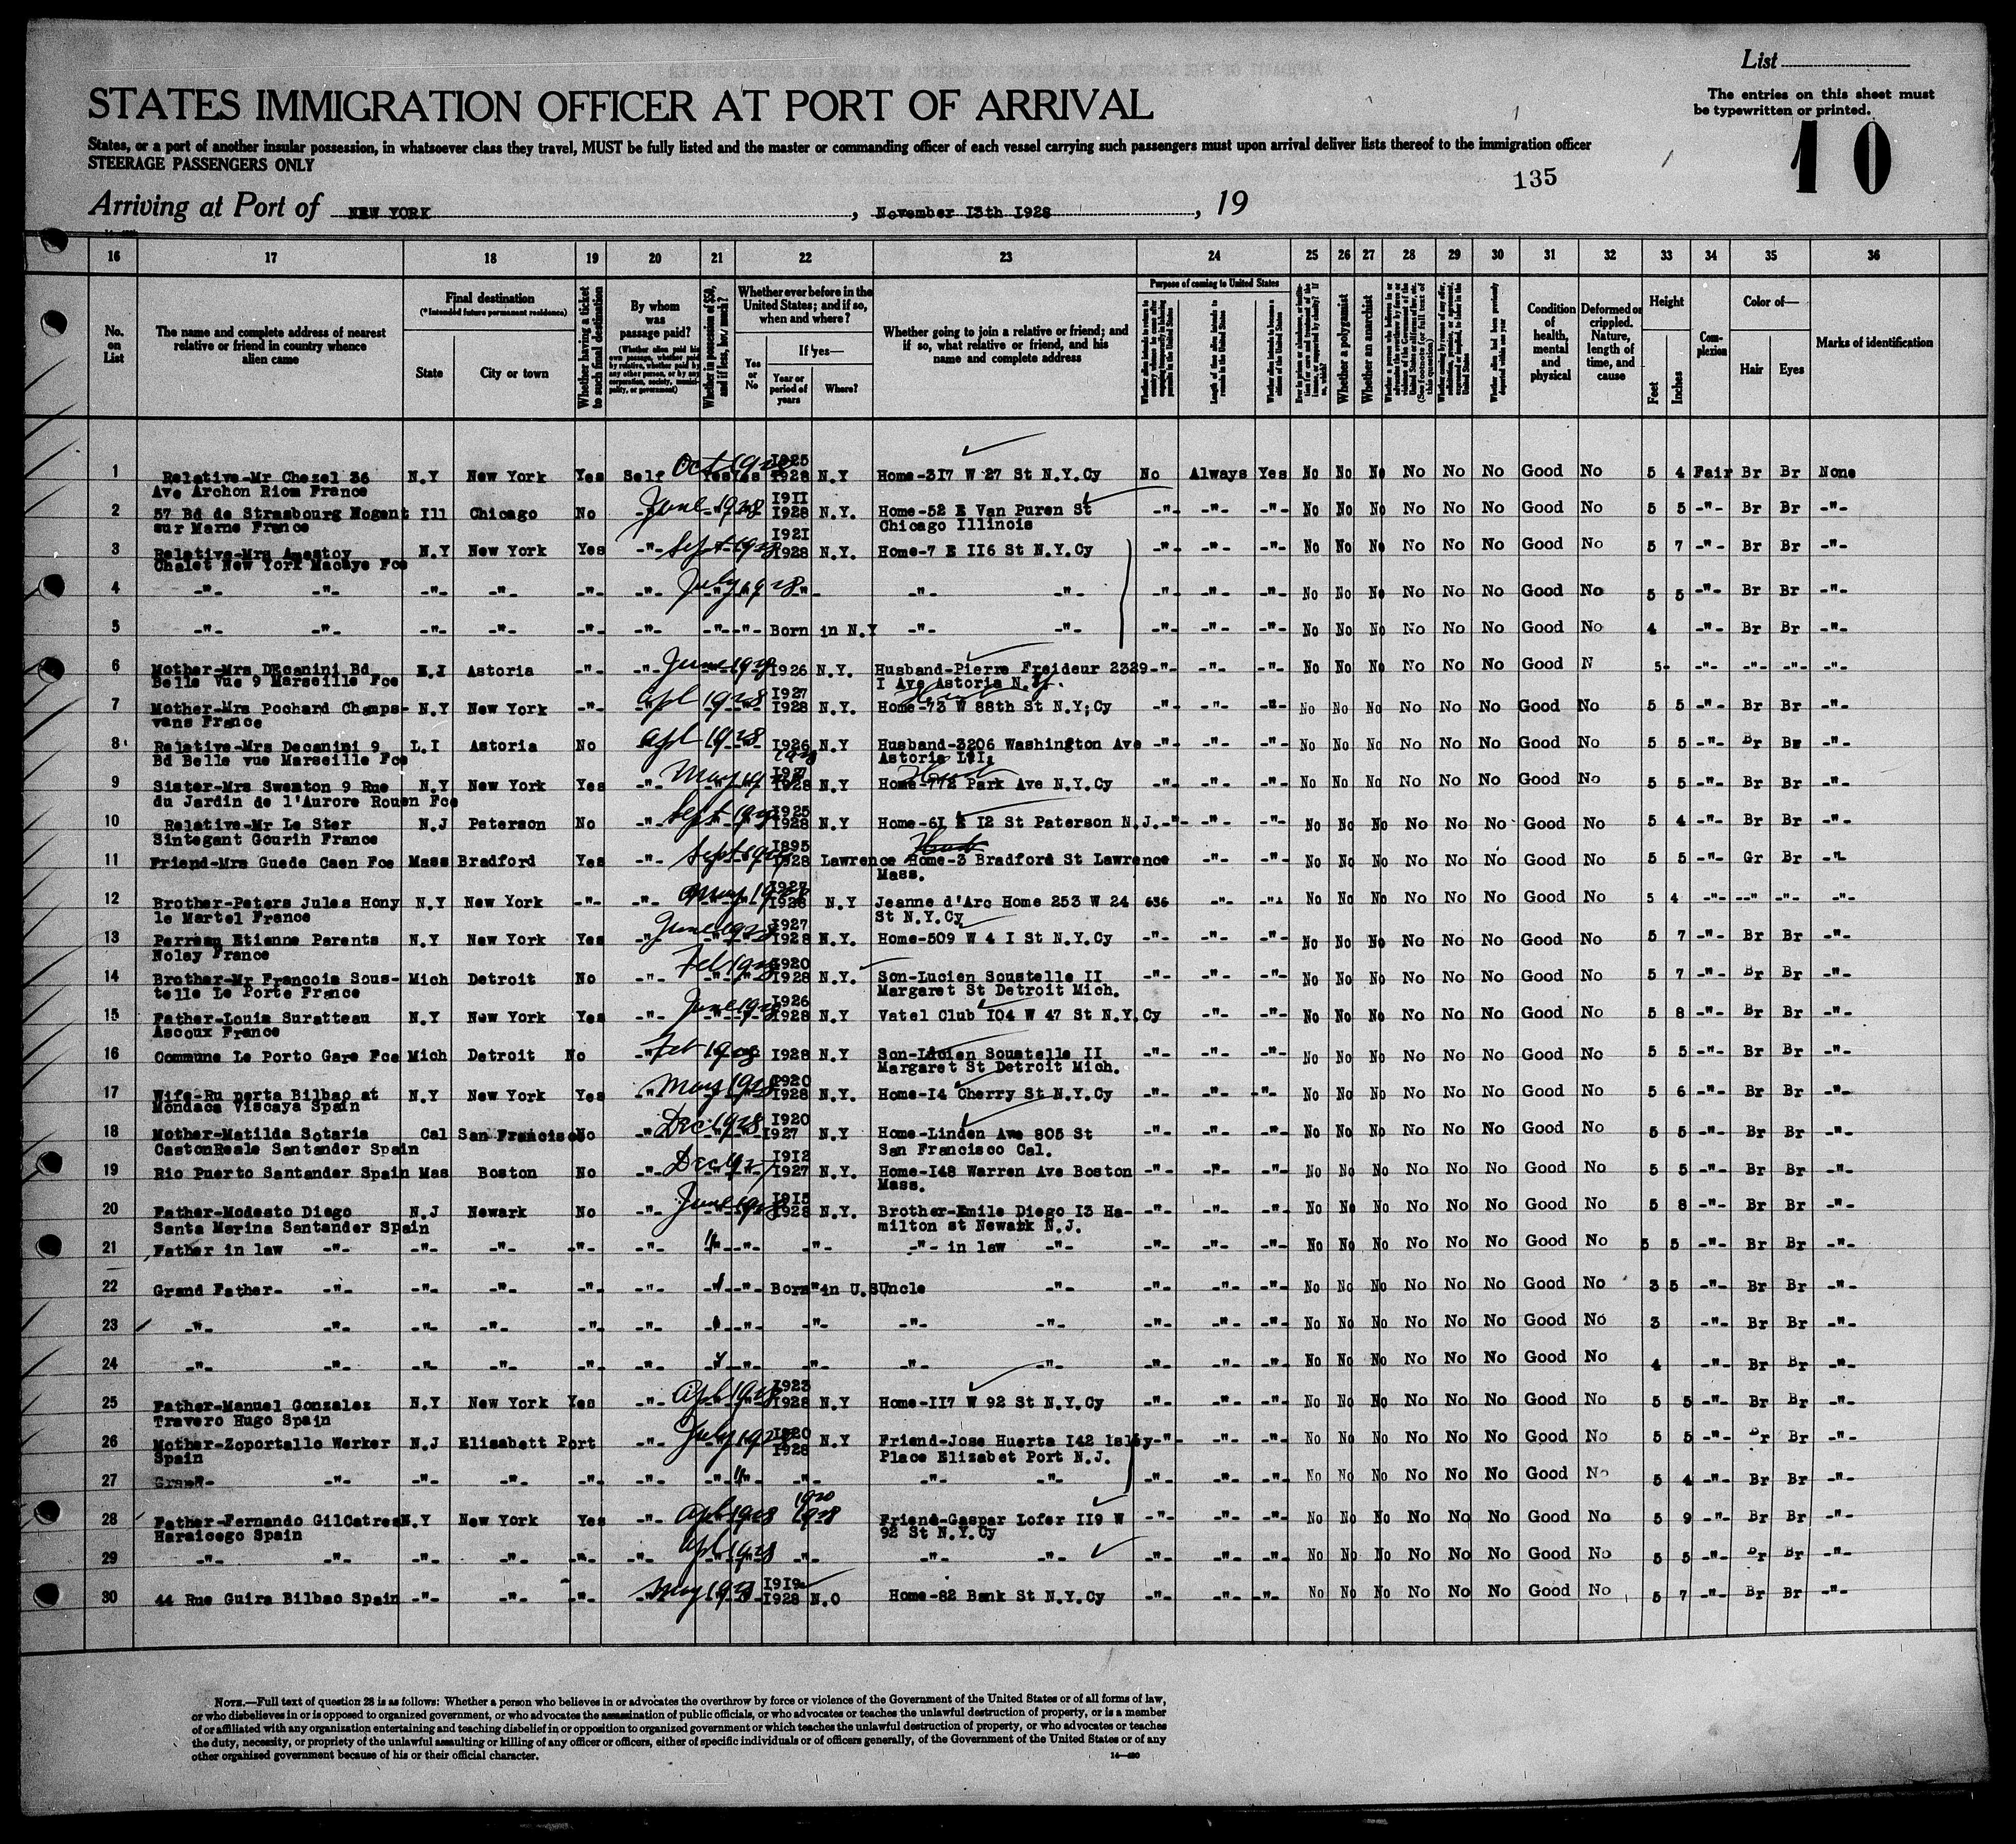 List
The entries on this sheet must
be typewritten or printed.
STATES IMMIGRATION OFFICER AT PORT OF ARRIVAL
10
States, or a port of another insular possession, in whatsoever class they travel, MUST be fully listed and the master or commanding officer of each vessel carrying such passengers must upon arrival deliver lists thereof to the immigration officer
STEERAGE PASSENGERS ONLY
135
Arriving at Port of NEW YORK, November 13th 1928, 19
16 17 18 19 20 21 22 23 24 25 26 27 28 29 30 31 32 33 34 35 36
No. on List
The name and complete address of nearest relative or friend in country whence alien came
Final destination
(*Intended future permanent residence)
State
City or town
Whether having a ticket to such final destination
By whom was passage paid?
(Whether alien paid his own passage, whether paid by relative, whether paid by any other person, or by any corporation, society, municipality, or government)
Whether in possession of $50, and if less, how much?
Whether ever before in the United States; and if so, when and where?
Yes or No
If yes—
Year or period of years
Where?
Whether going to join a relative or friend; and if so, what relative or friend, and his name and complete address
Purpose of coming to United States
Length of time alien intends to remain in the United States
Whether alien intends to become a citizen of the United States
Whether a polygamist
Whether an anarchist
Condition of health, mental and physical
Deformed or crippled. Nature, length of time, and cause
Height
Feet
Inches
Complexion
Color of—
Hair
Eyes
Marks of identification
1 Relative-Mr Chezel 36 N.Y New York Yes Self Oct 1928 Yes Yes 1925 1928 N.Y Home-317 W 27 St N.Y.Cy No Always Yes No No No No No No Good No 5 4 Fair Br Br None
Ave Archon Riom France
2 57 Bd de Strasbourg Nogent Ill Chicago No -"- June 1928 1911 1928 N.Y. Home-52 E Van Puren St -"- -"- -"- No No No No No No Good No 5 5 -"- Br Br -"-
sur Marne France Chicago Illinois
3 Relative-Mrs Amestoy N.Y New York Yes -"- Sept 1928 1921 1928 N.Y. Home-7 E 116 St N.Y.Cy -"- -"- -"- No No No No No No Good No 5 7 -"- Br Br -"-
Chalet New York Macaye Fce
4 -"- -"- -"- -"- -"- -"- July 1928 -"- -"- -"- -"- -"- -"- No No No No No No Good No 5 5 -"- Br Br -"-
5 -"- -"- -"- -"- -"- -"- -"- -"- Born in N.Y -"- -"- -"- -"- -"- No No No No No No Good No 4 -"- Br Br -"-
6 Mother-Mrs Decanini Bd Astoria -"- -"- June 1928 1926 N.Y. Husband-Pierre Freideur 2329 -"- -"- -"- No No No No No No Good N 5 -"- -"- -"- -"-
Belle Vue 9 Marseille Fce I Ave Astoria N.Y.
7 Mother-Mrs Pochard Champs- N.Y New York -"- Apl 1928 1927 1928 N.Y. Home-73 W 88th St N.Y;Cy -"- -"- -"- No No No No No No Good No 5 5 -"- Br Br -"-
vans France
8 Relative-Mrs Decanini 9 L.I Astoria No Apl 1928 1926 1928 N.Y Husband-3206 Washington Ave -"- -"- -"- No No No No No No Good No 5 5 -"- Br Br -"-
Bd Belle vue Marseille Fce Astoria L.I.
9 Sister-Mrs Sweaton 9 Rue N.Y New York Yes -"- May 1928 1928 N.Y Home-772 Park Ave N.Y.Cy -"- -"- -"- No No No No No No Good No 5 5 -"- Br Br -"-
du Jardin de l'Aurore Rouen Fce
10 Relative-Mr Le Ster N.J Peterson No -"- Sept 1928 1925 1928 N.Y Home-61 E 12 St Paterson N.J. -"- -"- -"- No No No No No No Good No 5 4 -"- Br Br -"-
Sintegant Gourih France
11 Friend-Mrs Guede Caen Fce Mass Bradford Yes -"- Sept 1928 1895 1928 Lawrence Home-3 Bradford St Lawrence -"- -"- No No No No No No Good No 5 5 -"- Gr Br -"-
Mass.
12 Brother-Peters Jules Hony N.Y New York -"- -"- May 1928 1928 N.Y Jeanne d'Arc Home 253 W 24 636 -"- -"- No No No No No No Good No 5 4 -"- -"- -"- -"-
le Martel France St N.Y.Cy
13 Perrean Etienne Parents N.Y New York Yes June 1928 1927 1928 N.Y. Home-509 W 4 I St N.Y.Cy -"- -"- -"- No No No No No No Good No 5 7 -"- Br Br -"-
Nolay France
14 Brother-Mr Francois Sous- Mich Detroit No -"- Feb 1928 1920 1928 N.Y. Son-Lucien Soustelle II -"- -"- -"- No No No No No No Good No 5 7 -"- Br Br -"-
telle Le Porte France Margaret St Detroit Mich.
15 Father-Louis Suratteau N.Y New York Yes -"- June 1928 1926 1928 N.Y Vatel Club 104 W 47 St N.Y.Cy -"- -"- No No No No No No Good No 5 8 -"- Br Br -"-
Ascoux France
16 Commune Le Porto Gare Fce Mich Detroit No -"- Feb 1928 1928 N.Y Son-Lucien Soustelle II -"- -"- -"- No No No No No No Good No 5 5 -"- Br Br -"-
Margaret St Detroit Mich.
17 Wife-Ru perta Bilbao at N.Y New York Yes -"- May 1928 1920 1928 N.Y. Home-14 Cherry St N.Y.Cy -"- -"- -"- No No No No No No Good No 5 6 -"- Br Br -"-
Mondaca Viscaya Spain
18 Mother-Matilda Sotaria Cal San Francisco No -"- Dec 1928 1920 1927 N.Y Home-Linden Ave 805 St -"- -"- -"- No No No No No No Good No 5 5 -"- Br Br -"-
CastonReale Santander Spain San Francisco Cal.
19 Rio Puerto Santander Spain Mas Boston No -"- Dec 1927 1912 1927 N.Y. Home-148 Warren Ave Boston -"- -"- -"- No No No No No No Good No 5 5 -"- Br Br -"-
Mass.
20 Father-Modesto Diego N.J Newark No -"- June 1928 1915 1928 N.Y. Brother-Emile Diego 13 Ha- -"- -"- -"- No No No No No No Good No 5 8 -"- Br Br -"-
Santa Marina Santander Spain milton st Newark N.J.
21 Father in law -"- -"- -"- -"- -"- -"- -"- -"- -"- in law -"- -"- -"- -"- No No No No No No Good No 5 5 -"- Br Br -"-
22 Grand Father- -"- -"- -"- -"- -"- -"- Born in U.S Uncle -"- -"- -"- -"- No No No No No No Good No 3 5 -"- Br Br -"-
23 -"- -"- -"- -"- -"- -"- -"- -"- -"- -"- -"- -"- -"- No No No No No No Good No 3 -"- Br Br -"-
24 -"- -"- -"- -"- -"- -"- -"- -"- -"- -"- -"- -"- -"- No No No No No No Good No 4 -"- Br Br -"-
25 Father-Manuel Gonzalez N.Y New York Yes -"- Apl 1928 1923 1928 N.Y Home-117 W 92 St N.Y.Cy -"- -"- -"- No No No No No No Good No 5 5 -"- Br Br -"-
Travero Hugo Spain
26 Mother-Zoportallo Werker N.J Elisabett Port -"- July 1928 1920 1928 N.Y Friend-Jose Huerta 142 Islay -"- -"- -"- No No No No No No Good No 5 5 -"- Br Br -"-
Spain Place Elizabet Port N.J.
27 -"- -"- -"- -"- -"- -"- -"- -"- -"- -"- -"- -"- -"- No No No No No No Good No 5 4 -"- Br Br -"-
28 Father-Fernando GilCatres N.Y New York Yes -"- Apl 1928 1920 1928 Friend-Gaspar Lofer 119 W -"- -"- -"- No No No No No No Good No 5 9 -"- Br Br -"-
Haraicego Spain 92 St N.Y.Cy
29 -"- -"- -"- -"- -"- -"- Apl 1928 -"- -"- -"- -"- -"- -"- No No No No No No Good No 5 5 -"- Br Br -"-
30 44 Rue Guira Bilbao Spain -"- -"- -"- -"- May 1928 1919 1928 N.O Home-82 Bank St N.Y.Cy -"- -"- -"- No No No No No No Good No 5 7 -"- Br Br -"-
NOTE.—Full text of question 28 is as follows: Whether a person who believes in or advocates the overthrow by force or violence of the Government of the United States or of all forms of law,
or who disbelieves in or is opposed to organized government, or who advocates the assassination of public officials, or who advocates or teaches the unlawful destruction of property, or is a member
of or affiliated with any organization entertaining and teaching disbelief in or opposition to organized government or which teaches the unlawful destruction of property, or who advocates or teaches
the duty, necessity, or propriety of the unlawful assaulting or killing of any officer or officers, either of specific individuals or of officers generally, of the Government of the United States or of any
other organized government because of his or their official character.
14—480